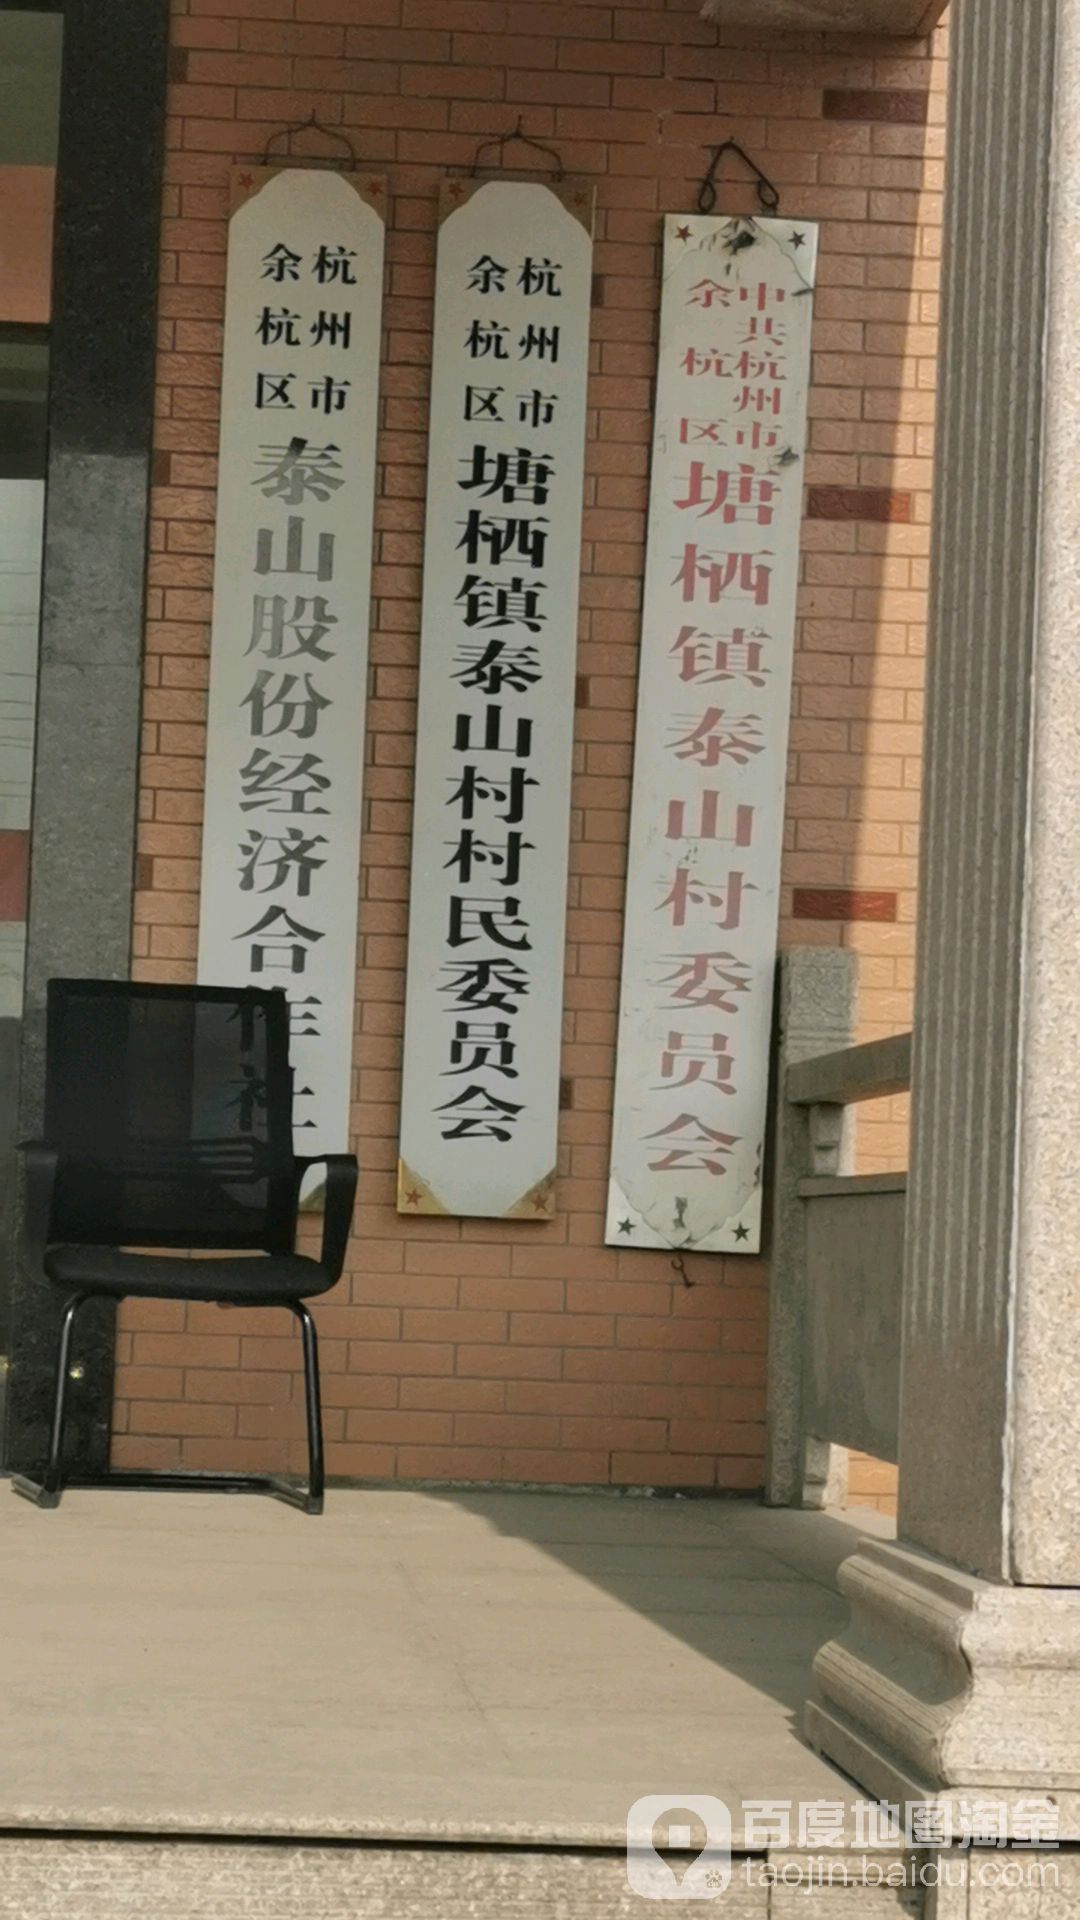 杭州市
余杭区
泰山股份经济合作社
杭州市
余杭区
塘栖镇泰山村村民委员会
中共杭州市
余杭区
塘栖镇泰山村委员会
百度地图淘金
taojin.baidu.com